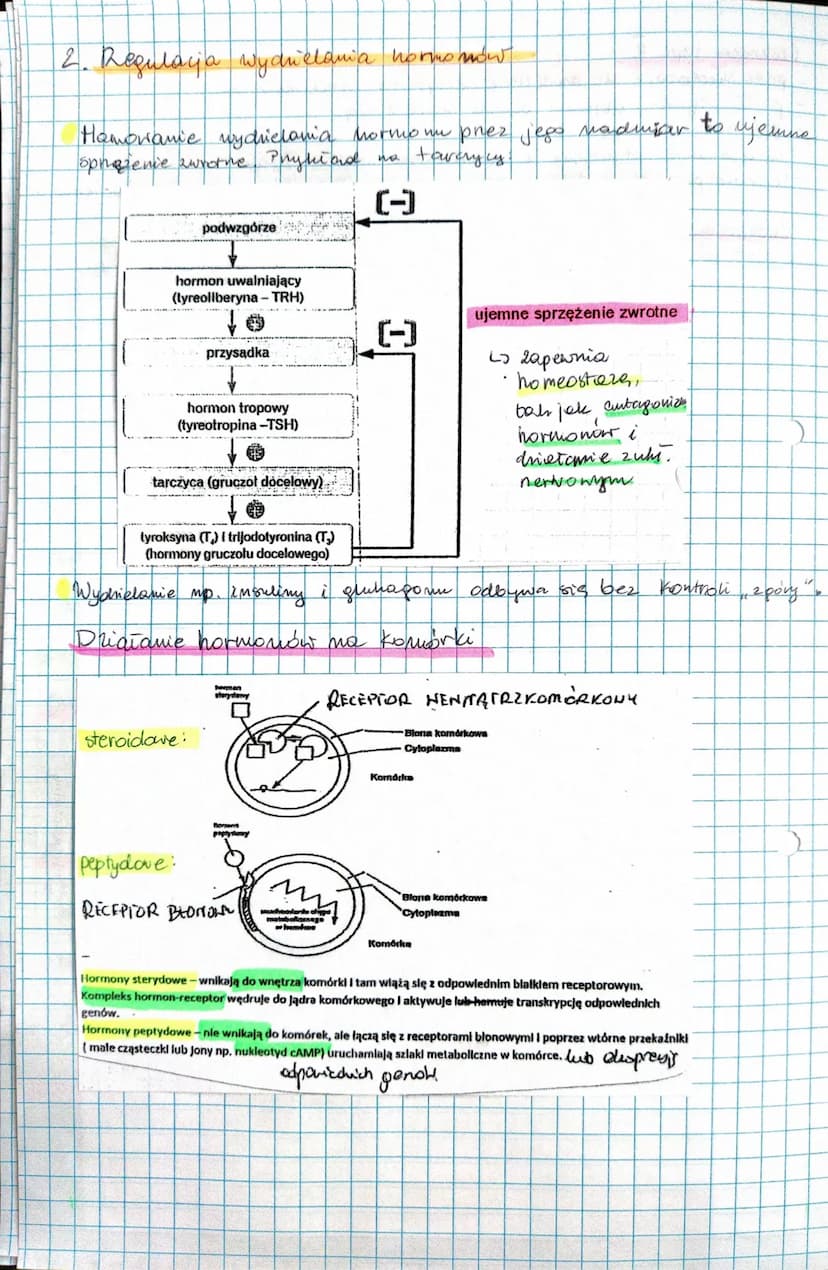 2. Regulacja wydzielania hormonów
Hamowanie wydzielania hormonu przez jego nadmiar to ujemne
sprzężenie zwrotne. Przykład na tarczycy:
[-]
podwzgórze
hormon uwalniający
(tyreoliberyna – TRH)
[-]
przysadka
hormon tropowy
(tyreotropina –TSH)
tarczyca (gruczoł docelowy)
tyroksyna (T4) i trijodotyronina (T3)
(hormony gruczołu docelowego)
ujemne sprzężenie zwrotne
↳ zapewnia
homeostazę,
tak jak antagonizm
hormonów i
działanie ukł.
nerwowym
Wydzielanie np. insuliny i glukagonu odbywa się bez kontroli "z góry".
Działanie hormonów na komórki
hormon
sterydowy
RECEPTOR WEWNĄTRZKOMÓRKOWY
steroidowe:
Błona komórkowa
Cytoplazma
Komórka
hormon
peptydowy
peptydowe:
RECEPTOR BŁONOWY
Błona komórkowa
Cytoplazma
uruchomienie
metabolicznego
w komórce
Komórka
Hormony sterydowe – wnikają do wnętrza komórki i tam wiążą się z odpowiednim białkiem receptorowym.
Kompleks hormon-receptor wędruje do jądra komórkowego i aktywuje lub hamuje transkrypcję odpowiednich
genów.
Hormony peptydowe – nie wnikają do komórek, ale łączą się z receptorami błonowymi i poprzez wtórne przekaźniki
( małe cząsteczki lub jony np. nukleotyd cAMP) uruchamiają szlaki metaboliczne w komórce. lub ekspresję
odpowiednich genów.